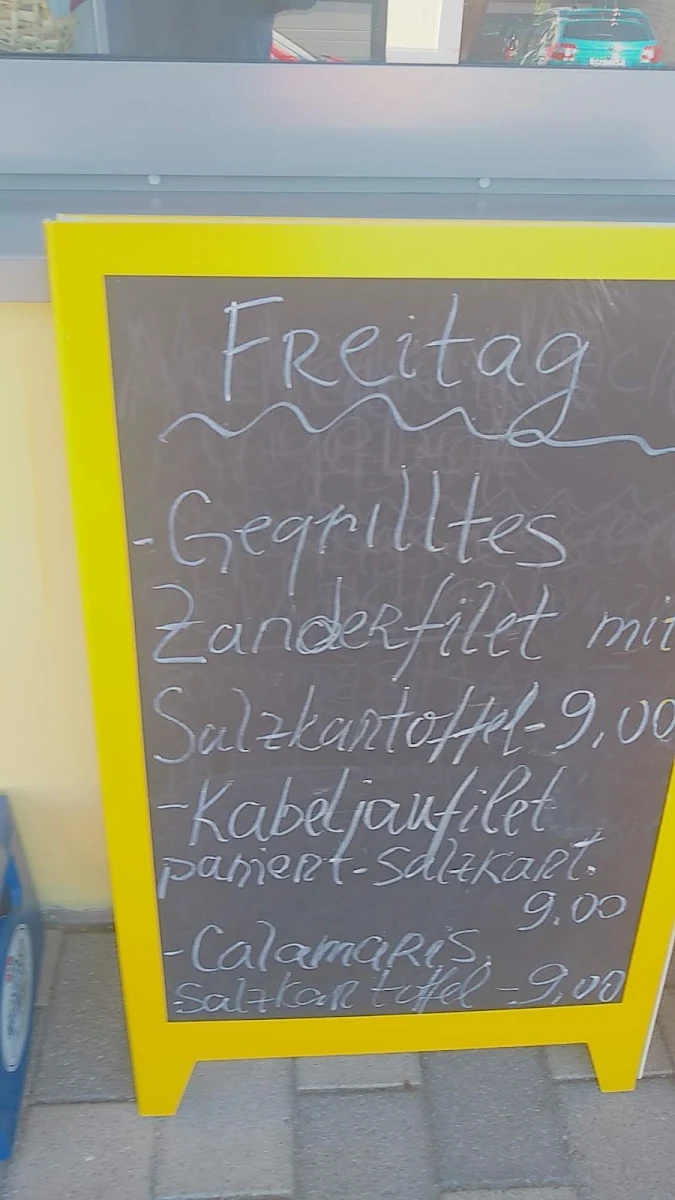 FReitag
-Gegrilltes
ZandeRfilet mit
Salzkartoffel-9,00
-Kabeljaufilet
paniert-Salzkart.
9.00
-CalamaRis,
Salzkartoffel-9,00